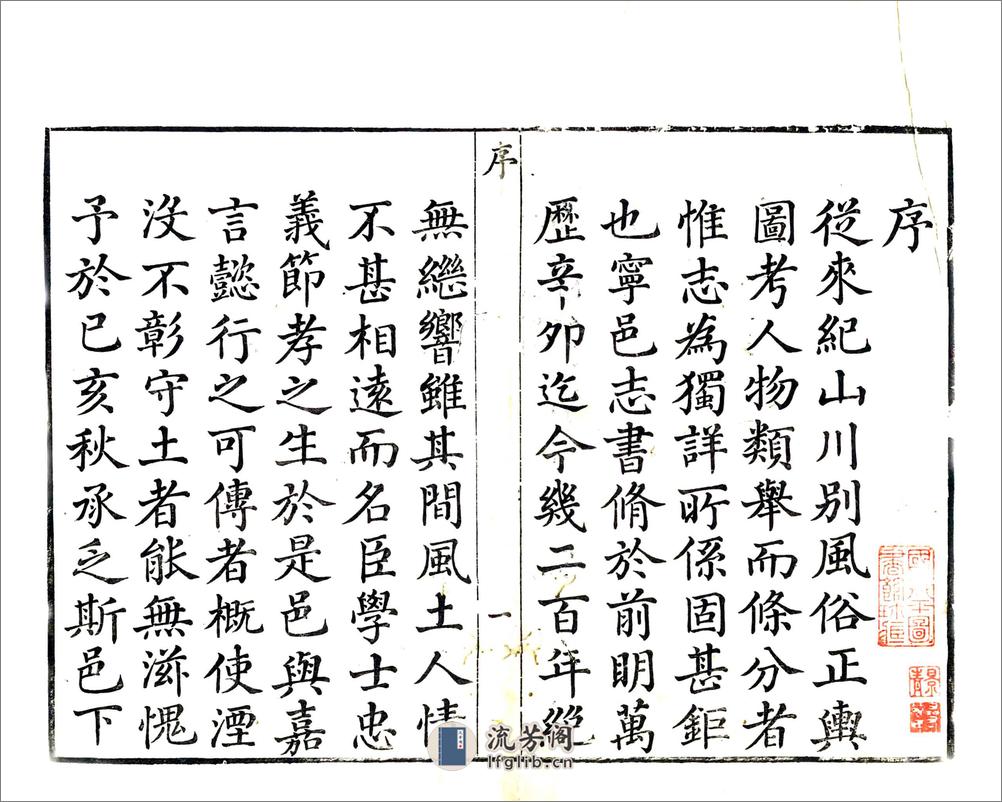 序
從來紀山川別風俗正輿
圖考人物類舉而條分者
惟志為獨詳所係固甚鉅
也寧邑志書脩於前明萬
歷辛卯迄今幾二百年絕
序
一
無繼響雖其間風土人情
不甚相遠而名臣學士忠
義節孝之生於是邑與嘉
言懿行之可傳者概使湮
沒不彰守土者能無滋愧
予於已亥秋承乏斯邑下
流芳阁
lfglib.cn